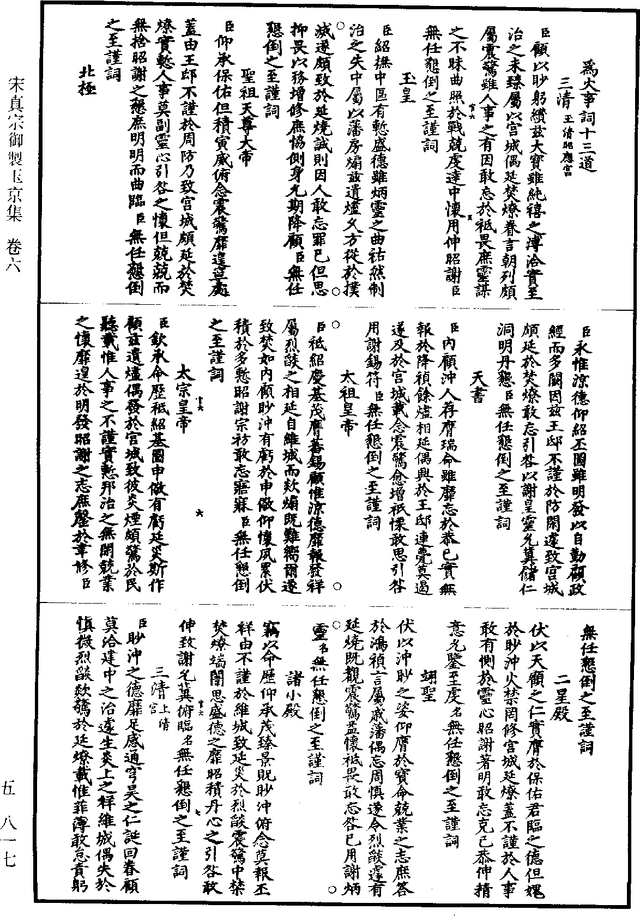 為火事詞十三道
三清玉清昭應宮
臣顧以眇躬纘茲大寶雖純禧之溥洽實至
治之未臻屬以宮城偶延焚燎眷言朝列頗
屬震驚雖人事之有因敢忘於祗畏庶靈謀
之不昧曲照於戰兢虔達中懷用伸昭謝臣
無任懇倒之至謹詞
玉皇
臣紹撫中區有慙盛德雖炳靈之曲祐然制
治之失中屬以藩房煽茲遺燼久方從於撲
滅遂頗致於延燒誠則因人敢忘罪已但思
抑畏以務增修庶協側身允期降顧臣無任
懇倒之至謹詞
聖祖天尊大帝
臣仰承保佑但積寅威俯念震驚靡遑寧處
蓋由王邸不謹於周防乃致宮城頗延於焚
燎實慙人事莫副靈心引咎之懷但兢兢而
無捨昭謝之懇庶明明而曲臨臣無任懇倒
之至謹詞
北極
臣永惟涼德仰紹丕圖雖明發以自勤顧政
經而多闕因茲王邸不謹於防閑遽致宮城
頗延於焚燎敢忘引咎以謝皇靈允冀儲仁
洞明丹懇臣無任懇倒之至謹詞
天書
臣內顧沖人存膺瑞命雖靡忘於恭已實無
報於降禎餘爐相延偶興於王邸連甍莫遏
遂及於宮城載念震驚愈增祗慄敢思引咎
用謝錫符臣無任懇倒之至謹詞
太祖皇帝
臣祗紹慶基茂膺蕃錫顧惟涼德靡報發祥
屬烈燄之相延自維城而欻煽既難嚮邇遂
致焚如內顧眇沖有虧於申儆仰懷夙累伏
積於多慙昭謝宗祊敢忘寤寐臣無任懇倒
之至謹詞
太宗皇帝
臣欽承命歷祗紹基圖申儆有虧延災斯作
顧茲遺燼偶發於宮城致彼炎煙頗驚於民
聽載惟人事之不謹實慙邦治之無聞兢業
之懷靡遑於明發昭謝之志庶罄於聿修臣
無任懇倒之至謹詞
二星殿
伏以天顧之仁實膺於保佑君臨之德但媿
於眇沖火禁罔修宮城延燎蓋不謹於人事
敢有惻於靈心昭謝著明敢忘克己恭伸精
意允鑒至虔名無任懇倒之至謹詞
翊聖
伏以沖眇之姿仰膺於寶命兢業之志庶荅
於鴻禎言屬戚藩偶忘周慎遂令烈燄遽有
延燒既觀震驚盍懷祗畏敢忘咎已用謝炳
靈名無任懇倒之至謹詞
諸小殿
竊以命歷仰承茂臻景貺眇沖俯念莫報丕
祥由不謹於維城致延炎於烈燄震驚中禁
焚燎端闈思盛德之靡昭積丹心之引咎敢
伸致謝允冀俯臨名無任懇倒之至謹詞
三清上清宮
臣眇沖之德靡足感通穹昊之仁誕回眷顧
莫洽建中之治遽生炎上之祥維城偶失於
慎微烈燄欻驚於延燎載惟菲薄敢怠責躬
宋真宗御製玉京集 卷六
五 八一七